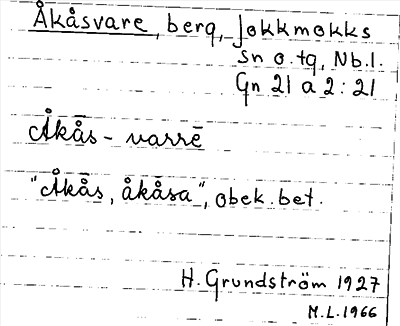 Åkåsvare, berg, Jokkmokks
sn o. tg, Nb.l.
Gn 21 a 2:21
Åkås-varrē
"Åkås, åkåsa", obek. bet.
H. Grundström 1927
M.L. 1966